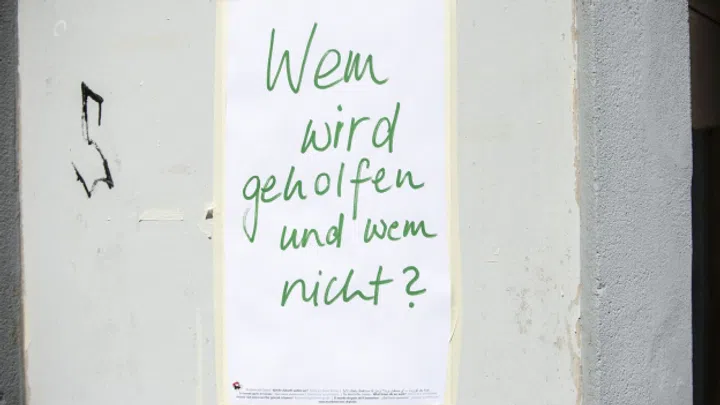 Wem
wird
geholfen
und wem
nicht?